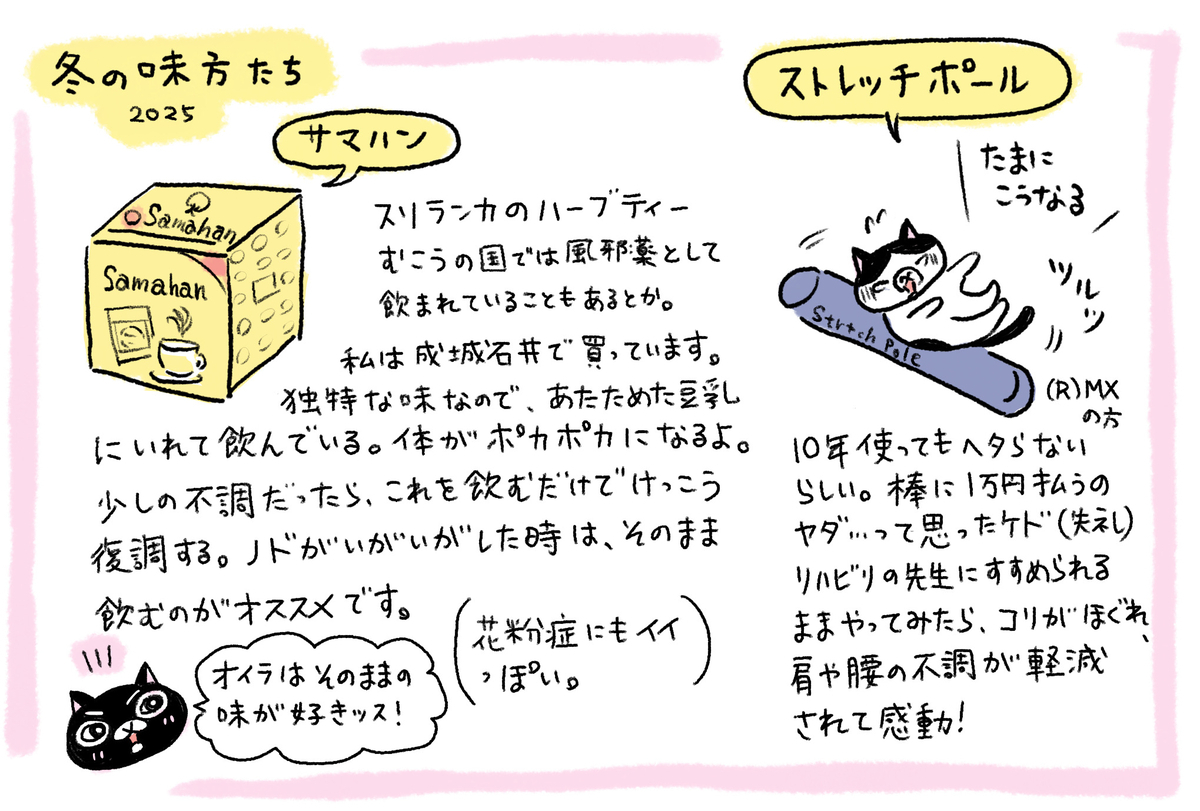 冬の味方たち
2025
サマハン
Samahan
Samahan
スリランカのハーブティー
むこうの国では風邪薬として
飲まれていることもあるとか。
私は成城石井で買っています。
独特な味なので、あたためた豆乳
にいれて飲んでいる。体がポカポカになるよ。
少しの不調だったら、これを飲むだけでけっこう
復調する。ノドがいがいがした時は、そのまま
飲むのがオススメです。
(花粉症にもイイ
っぽい。)
オイラはそのままの
味が好きッス!
ストレッチポール
たまに
こうなる
ツルッ
Strtch Pole
(R)MX
の方
10年使ってもヘタらない
らしい。棒に1万円払うの
ヤダ…って思ったケド(失ネし)
リハビリの先生にすすめられる
ままやってみたら、コリがほぐれ、
肩や腰の不調が軽減
されて感動!